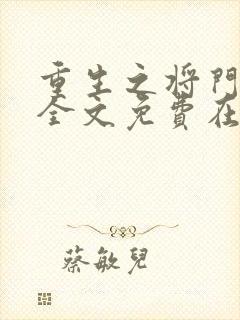 重生之将門
全文免費在
蔡敏兒